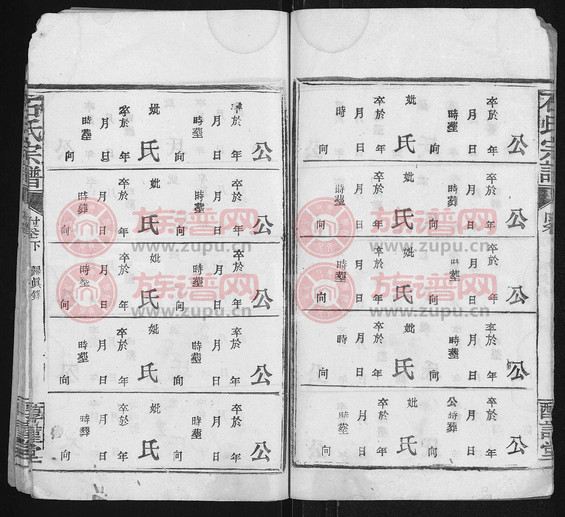 石氏宗譜
公
卒於 年 月 日 時塋 向
妣 氏
卒於 年 月 日 時塋 向
公
卒於 年 月 日 時塋 向
妣 氏
卒於 年 月 日 時塋 向
公
卒於 年 月 日 時塋 向
妣 氏
卒於 年 月 日 時塋 向
公
卒於 年 月 日 時塋 向
妣 氏
卒於 年 月 日 時 向
公
年 月 日 時塋 向
妣 氏
卒於 年 月 日 時塋 向
公
卒於 年 月 日 時塋 向
妣 氏
卒於 年 月 日 時塋 向
公
卒於 年 月 日 時塋 向
妣 氏
卒於 年 月 日 時塋 向
公
卒於 年 月 日 時塋 向
妣 氏
卒於 年 月 日 時塋 向
公
卒於 年 月 日 時塋 向
妣 氏
卒於 年 月 日 時塋 向
公
卒於 年 月 日 時塋 向
妣 氏
卒於 年 月 日 時塋 向
石氏宗譜
付卷下
堂
族谱网
www.zupu.cn
族谱网
www.zupu.cn
族谱网
www.zupu.cn
族谱网
www.zupu.cn